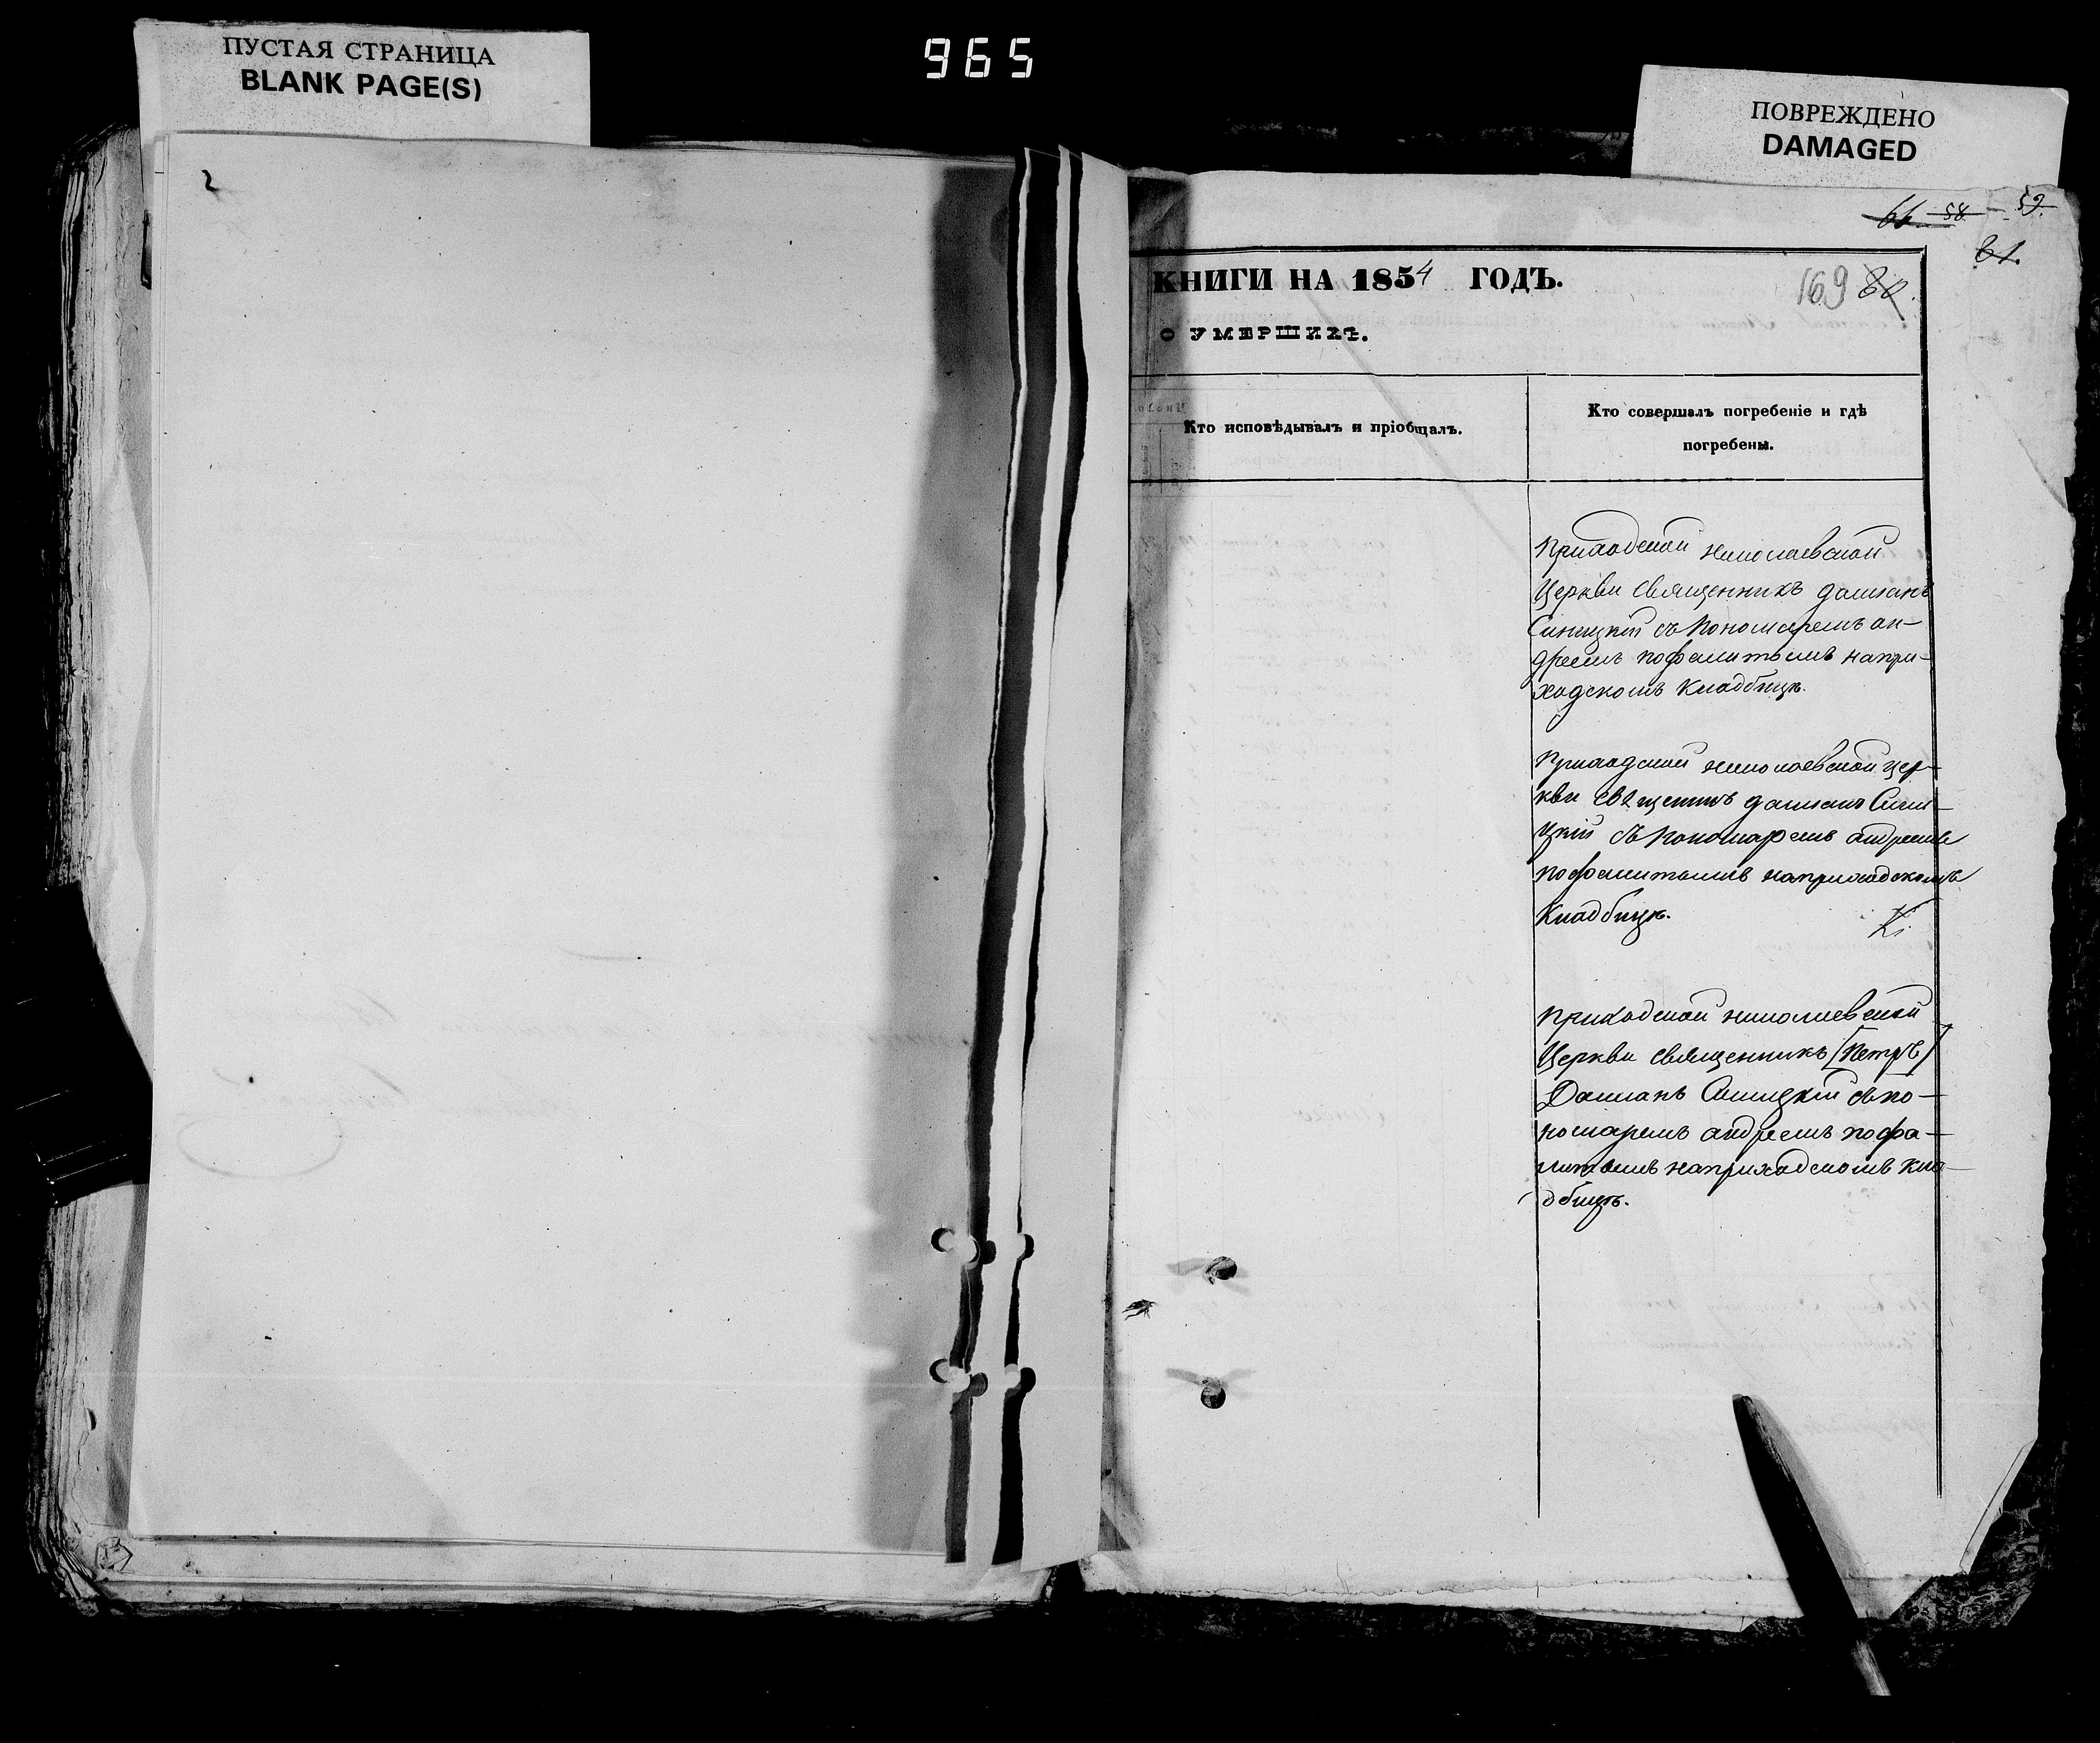 ПУСТАЯ СТРАНИЦА
BLANK PAGE(S)
965
ПОВРЕЖДЕНО
DAMAGED
2
66 58 59.
61.
КНИГИ НА 1854 ГОДЪ.
169 80.
О УМЕРШИХЪ.
Кто исповѣдывалъ и пріобщалъ.
Кто совершалъ погребеніе и гдѣ
погребены.
Приходской николаевской
Церкви священникъ дамианъ
Синицкій съ пономаремъ ан-
дреемъ на при-
ходскомъ кладбищѣ.
Приходской николаевской цер-
кви дамианъ Сини-
цкій съ пономаремъ андреемъ
на приходскомъ
Кладбищѣ.
Приходской николаевской
Церкви священникъ [Петръ]
Дамианъ Синицкій съ по-
номаремъ андреемъ
на приходскомъ кла-
дбищѣ.